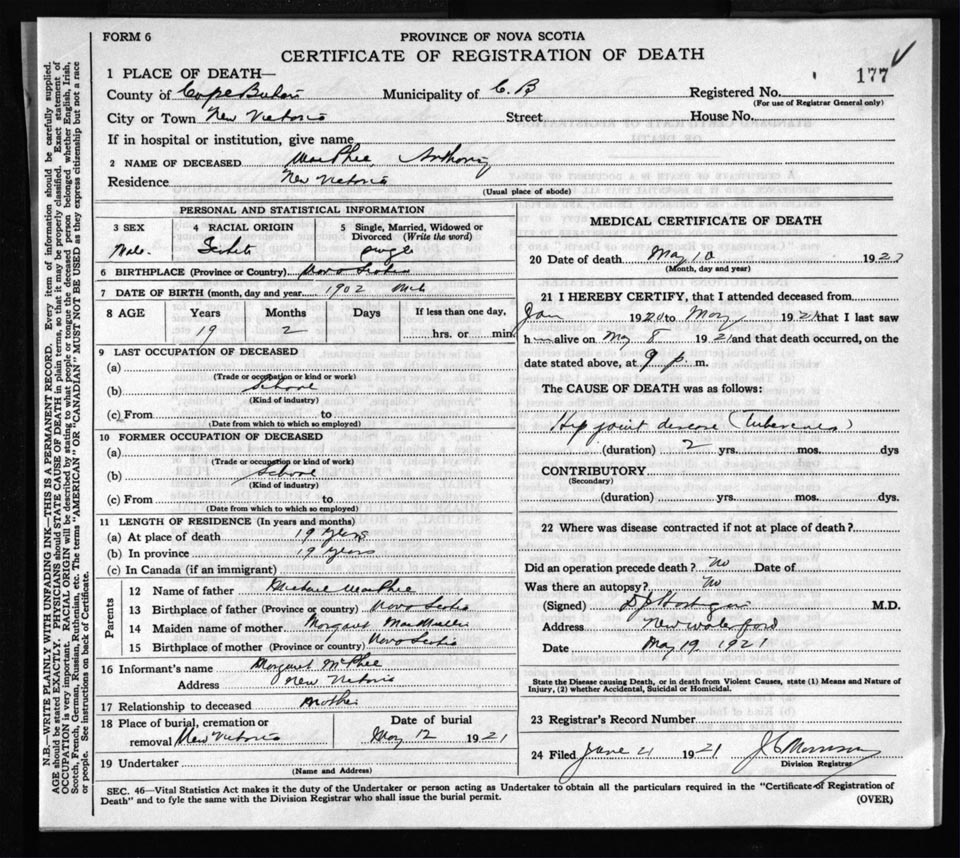 FORM 6
PROVINCE OF NOVA SCOTIA
CERTIFICATE OF REGISTRATION OF DEATH
177
1 PLACE OF DEATH—
County of Cape Breton Municipality of C. B Registered No.
(For use of Registrar General only)
City or Town New Victoria Street House No.
If in hospital or institution, give name
2 NAME OF DECEASED MacPhee Anthony
Residence New Victoria
(Usual place of abode)
PERSONAL AND STATISTICAL INFORMATION
3 SEX 4 RACIAL ORIGIN 5 Single, Married, Widowed or Divorced (Write the word)
Male Scotch single
6 BIRTHPLACE (Province or Country) Nova Scotia
7 DATE OF BIRTH (month, day and year 1902 Mch
8 AGE Years Months Days If less than one day,
19 2 hrs. or min.
9 LAST OCCUPATION OF DECEASED
(a)
(Trade or occupation or kind or work)
(b) School
(Kind of industry)
(c) From to
(Date from which to which so employed)
10 FORMER OCCUPATION OF DECEASED
(a)
(Trade or occupation or kind of work)
(b) School
(Kind of industry)
(c) From to
(Date from which to which so employed)
11 LENGTH OF RESIDENCE (In years and months)
(a) At place of death 19 years
(b) In province 19 years
(c) In Canada (if an immigrant)
Parents
12 Name of father Michael MacPhee
13 Birthplace of father (Province or country) Nova Scotia
14 Maiden name of mother Margaret MacMullin
15 Birthplace of mother (Province or country) Nova Scotia
16 Informant's name Margaret McPhee
Address New Victoria
17 Relationship to deceased Mother
18 Place of burial, cremation or Date of burial
removal New Victoria May 12 1921
19 Undertaker
(Name and Address)
MEDICAL CERTIFICATE OF DEATH
20 Date of death May 10 192
(Month, day and year)
21 I HEREBY CERTIFY, that I attended deceased from
Jan 1920 to May 1921 that I last saw
h alive on May 8 1921 and that death occurred, on the
date stated above, at 9 p m.
The CAUSE OF DEATH was as follows:
Hip joint disease (Tuberculous)
(duration) 2 yrs. mos. dys
CONTRIBUTORY
(Secondary)
(duration) yrs. mos. dys.
22 Where was disease contracted if not at place of death?
Did an operation precede death? no Date of
Was there an autopsy? No
(Signed) M.D.
Address New Waterford
Date May 19 1921
State the Disease causing Death, or in death from Violent Causes, state (1) Means and Nature of
Injury, (2) whether Accidental, Suicidal or Homicidal.
23 Registrar's Record Number
24 Filed June 21 1921 J C Morrison
Division Registrar
SEC. 46—Vital Statistics Act makes it the duty of the Undertaker or person acting as Undertaker to obtain all the particulars required in the "Certificate of Registration of
Death" and to fyle the same with the Division Registrar who shall issue the burial permit.
(OVER)
N.B.—WRITE PLAINLY WITH UNFADING INK—THIS IS A PERMANENT RECORD. Every item of information should be carefully supplied.
AGE should be stated EXACTLY. PHYSICIANS should STATE CAUSE OF DEATH in plain terms, so that it may be properly classified. Exact statement of
OCCUPATION is very important. RACIAL ORIGIN will be described by stating to what people or tongue the deceased person belonged whether English, Irish,
Scotch, French, German, Russian, Ruthenian, etc. The terms "AMERICAN" OR "CANADIAN" MUST NOT BE USED as they express citizenship but not a race
or people. See instructions on back of Certificate.